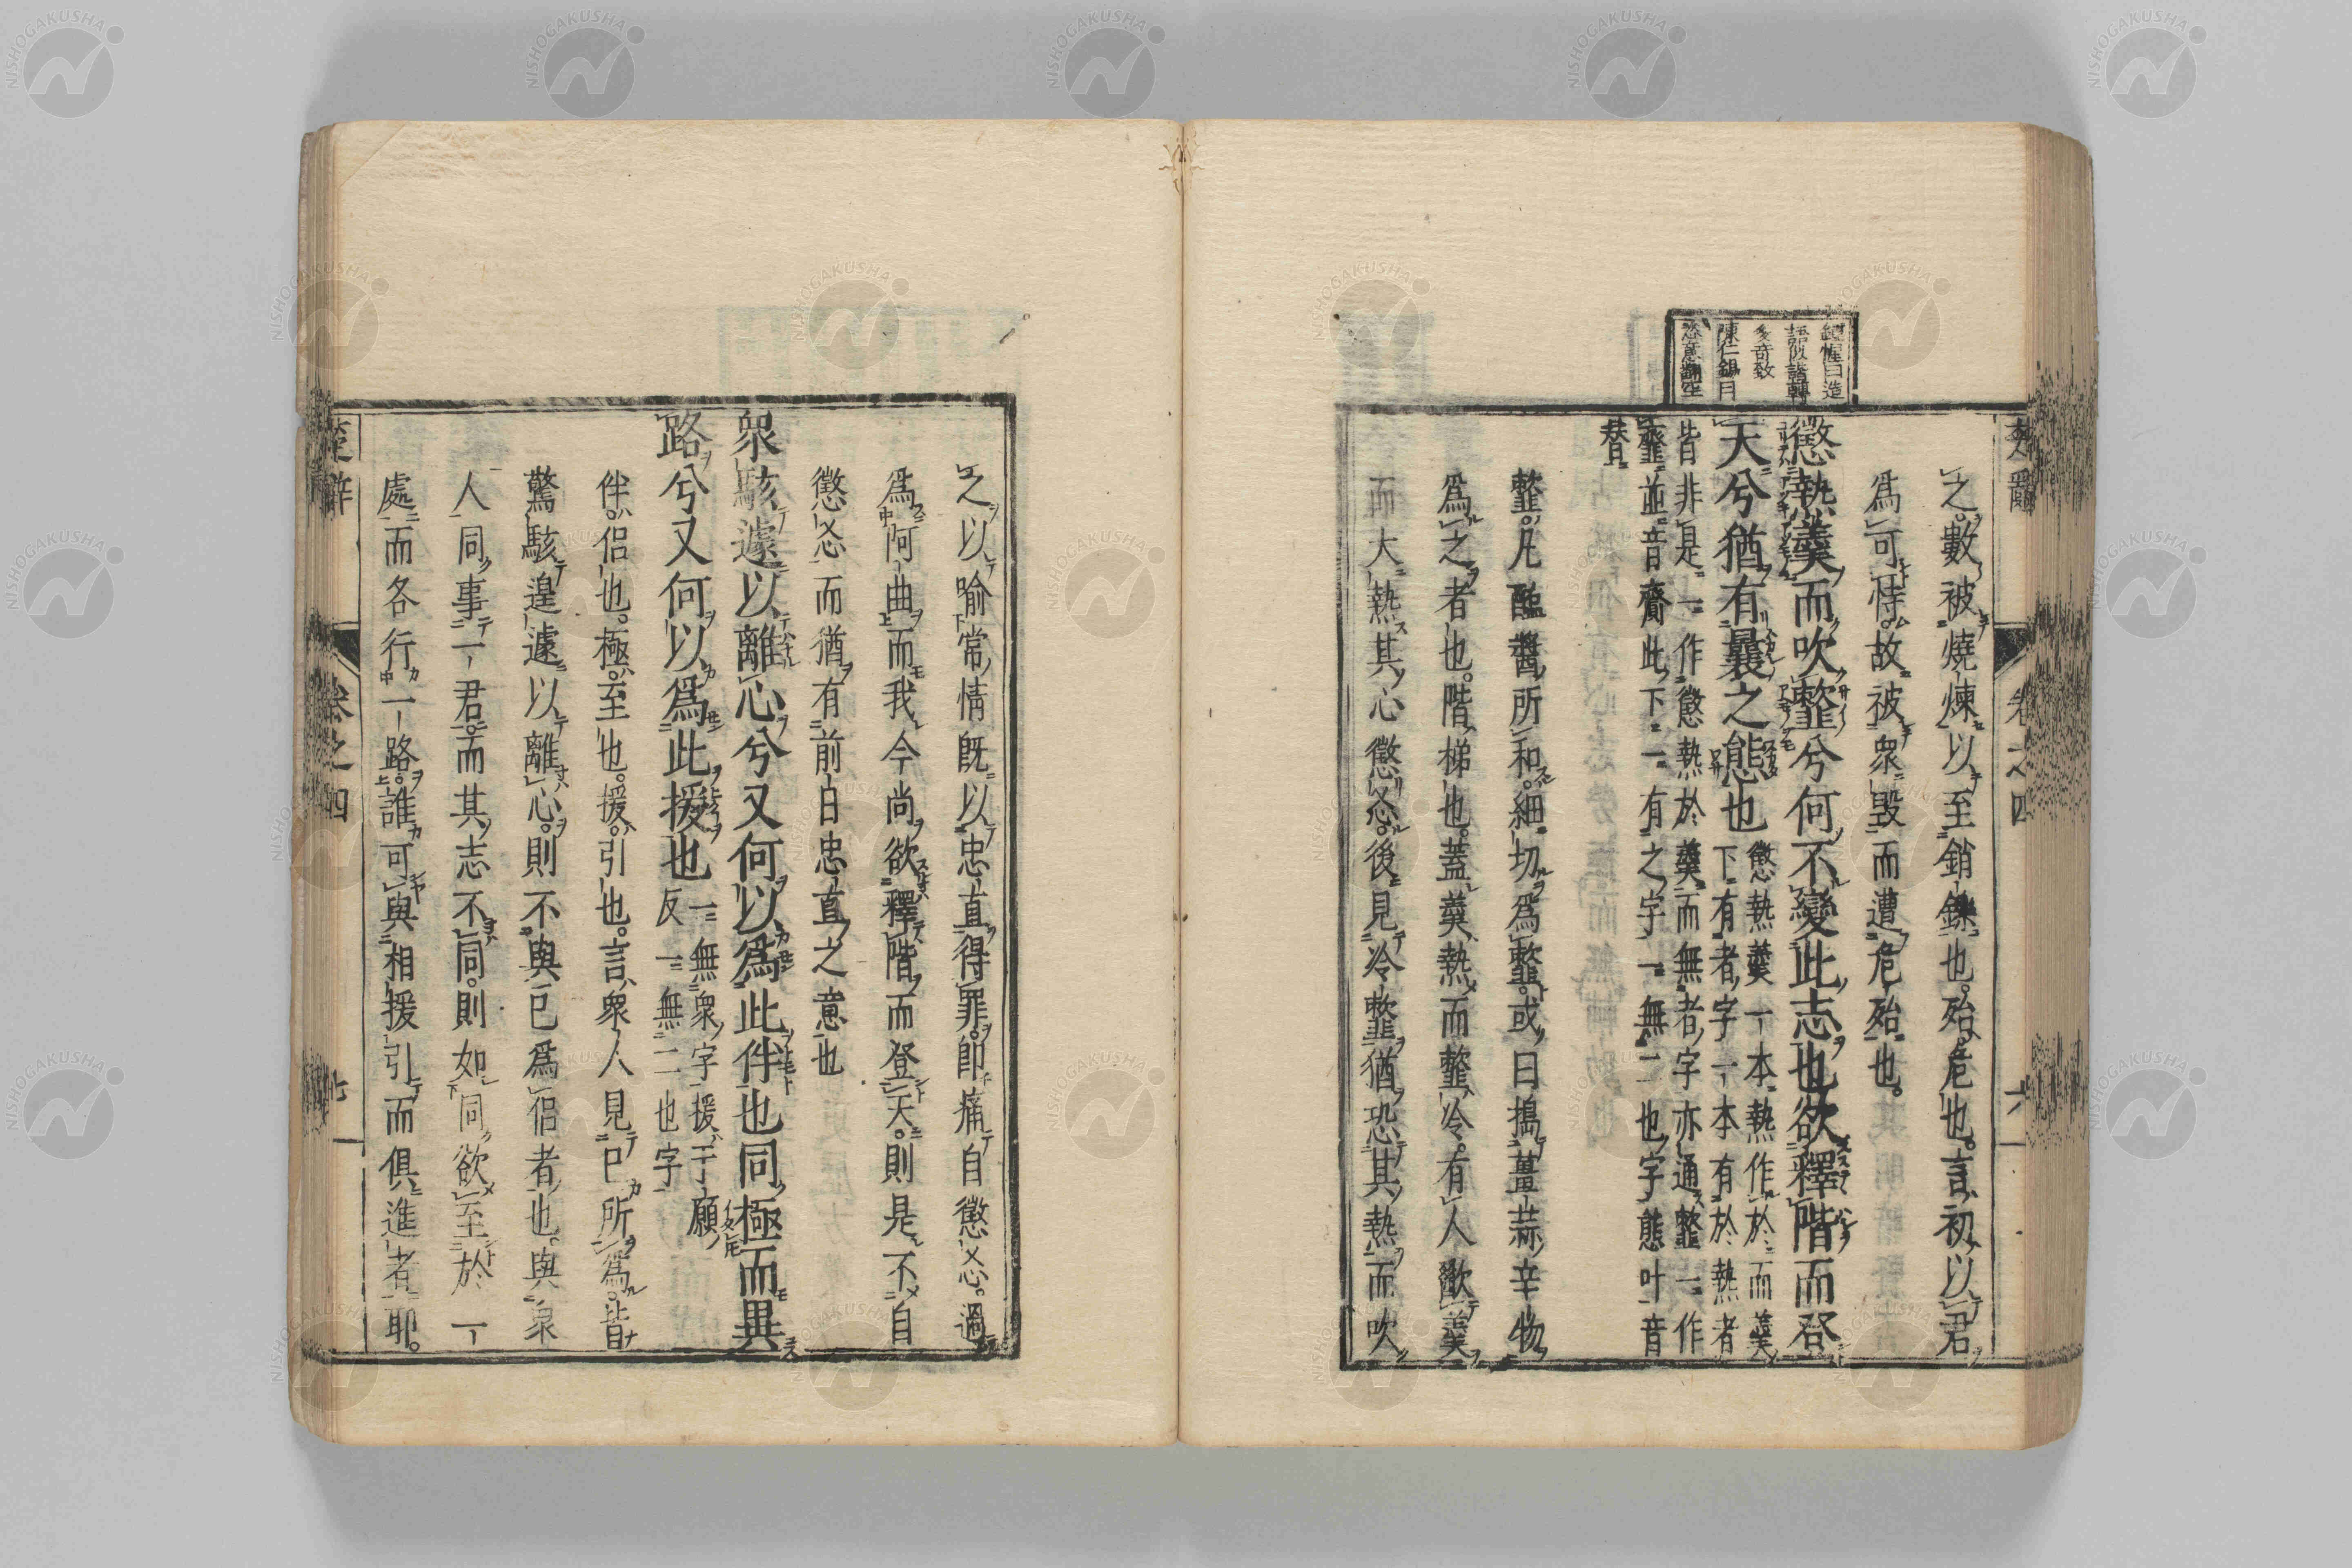 多奇致
陳仁錫曰
楚辭
卷之四
之數被燒煉以至銷鑠也。殆危也。言初以君
爲可恃。故被衆毀而遭危殆也。
懲熱羹而吹𩐋兮何不變此志也欲釋階而登
天兮猶有曩之態也
懲熱羹一本熱作於而羹
下有者字一本有於熱者
皆非是一作懲熱於羹而無者字亦通𩐋一作
韲並音齎此下一有之字一無二也字態叶音
替
𩐋。凡醢醬所和。細切爲𩐋。或曰搗薑蒜辛物
爲之者也。階梯也。蓋羹熱而𩐋冷。有人歠羹
而大熱其心懲㣻。後見冷𩐋猶恐其熱而吹
之以喻常情既以忠直得罪。即痛自懲㣻。過
爲阿曲而我今尚欲釋階而登天。則是不自
懲㣻而猶有前日忠直之意也
衆駭遽以離心兮又何以爲此伴也同極而異
路兮又何以爲此援也
一無衆字援于願
反一無二也字
伴。侶也。極。至也。援。引也。言衆人見已所爲。皆
驚駭遑遽以離心。則不與已爲侶者也。與衆
人同事一君。而其志不同。則如同欲至於一
處而各行一路。誰可與相援引而俱進者耶。
楚辭
卷之四